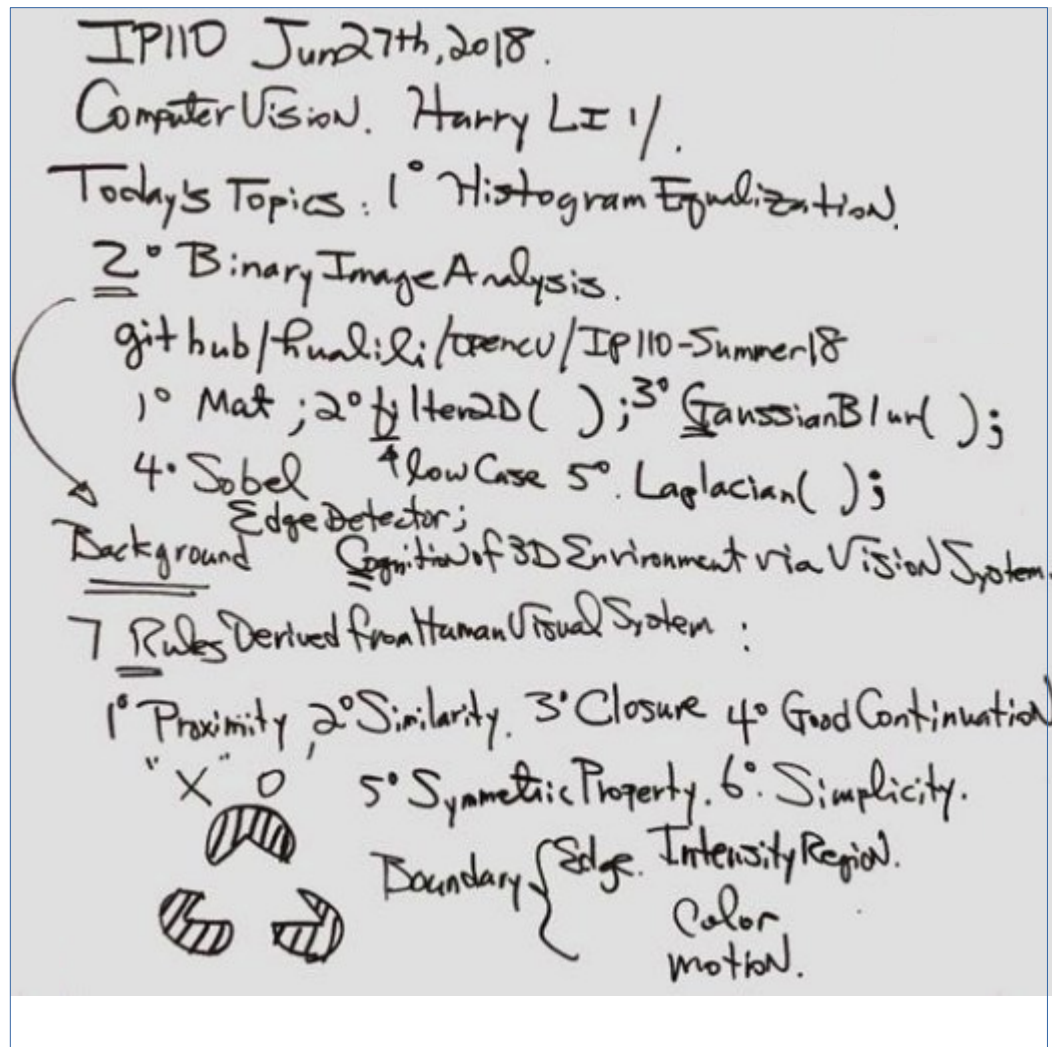 IP110 Jun27th, 2018.
Computer Vision. Harry LI 1/.
Today's Topics: 1° Histogram Equalization.
2° Binary Image Analysis.
github/hualili/opencv/IP110-Summer18
1° Mat ; 2° filter2D( ); 3° GaussianBlur( );
4° Sobel low Case 5°. Laplacian( );
Edge Detector;
Background Cognition of 3D Environment via Vision System.
7 Rules Derived from Human Visual System :
1° Proximity, 2° Similarity. 3° Closure 4° Good Continuation
"X" O 5° Symmetric Property. 6°. Simplicity.
Boundary { Edge. Intensity Region.
Color
motion.